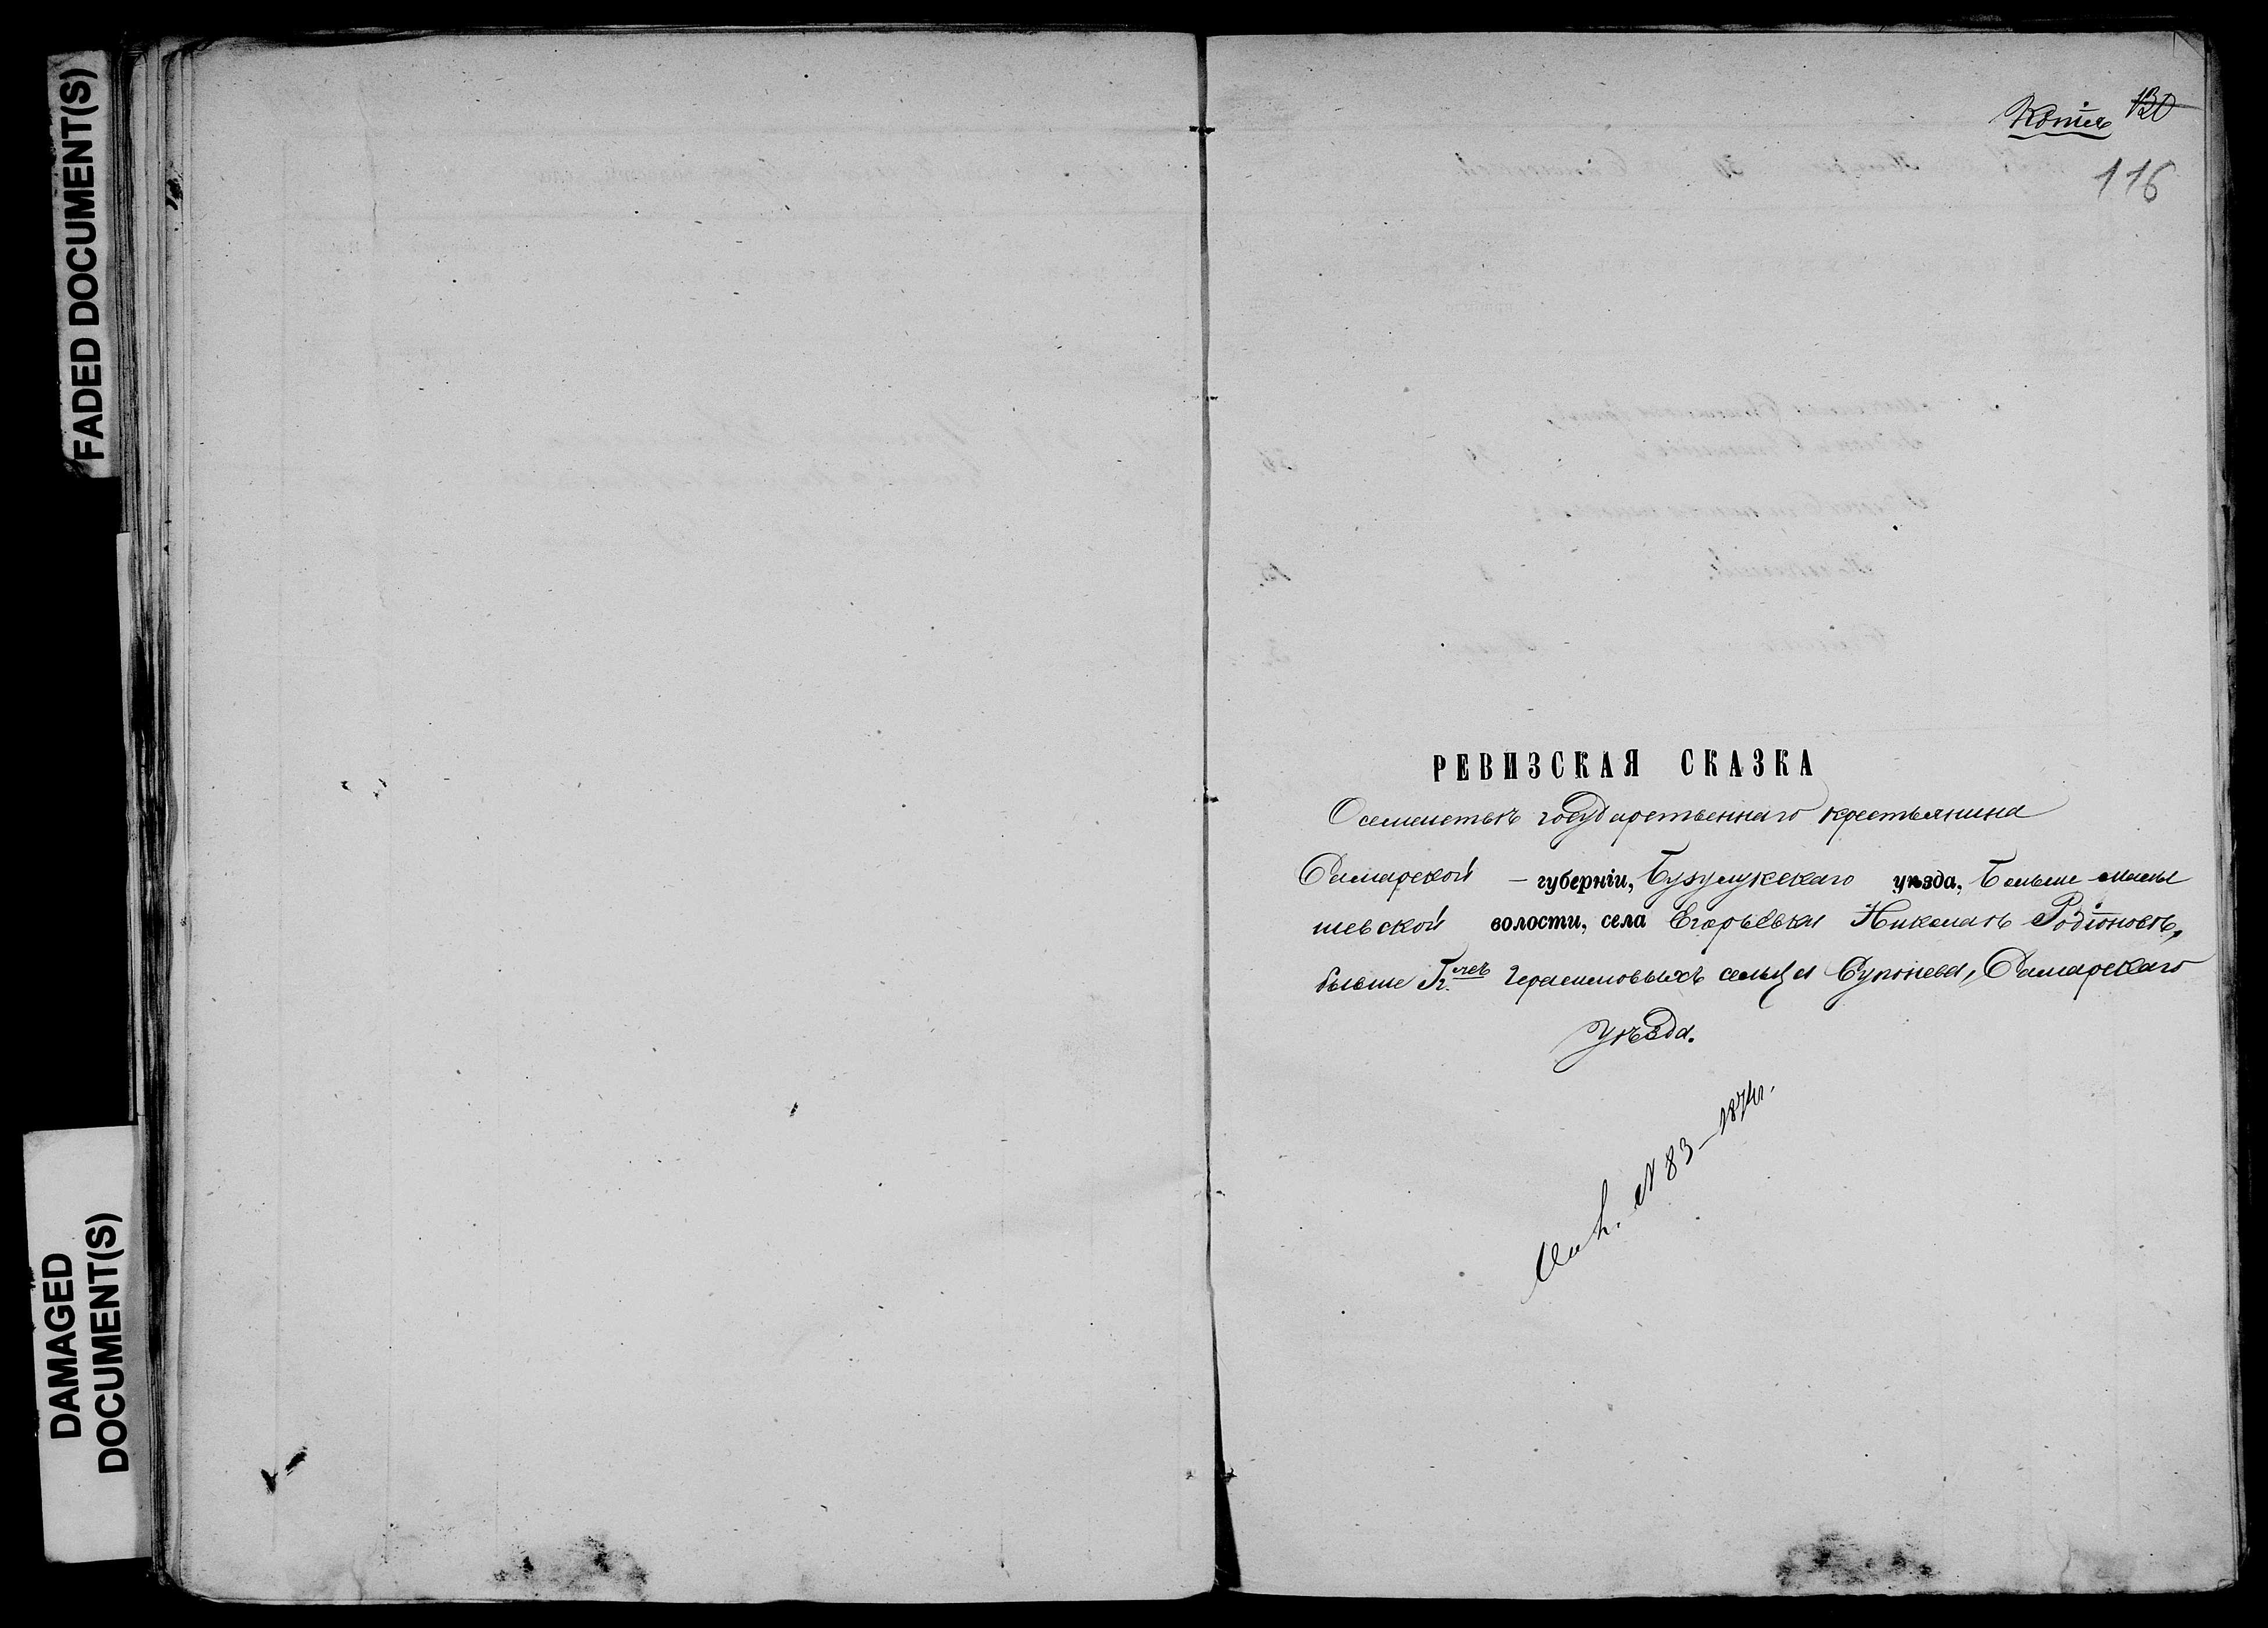 FADED DOCUMENT(S)
DAMAGED
DOCUMENT(S)
Копія 130
116
РЕВИЗСКАЯ СКАЗКА
О семействѣ государственнаго крестьянина
Самарской – губерніи, Бузулукскаго уѣзда, Больше-малы
шевской волости, села Егорьевки Николаѣ Родіоновѣ,
бывше Герасимовыхъ сельца Самарскаго
Уѣзда.
№ 83 – 1874 г.